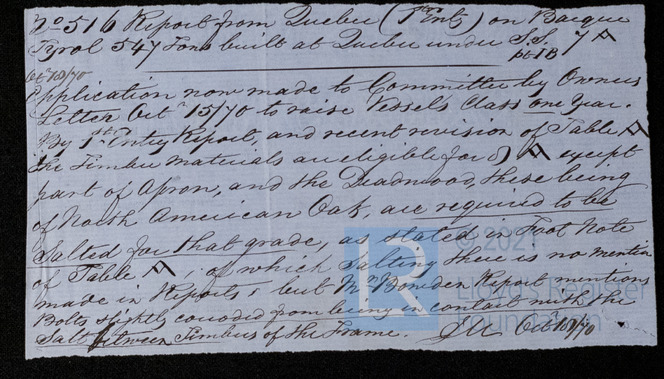 No 516 Report from Quebec (1st Entry) on Barque
Tyrol 547 Tons built at Quebec under S.S. 7 A
pt IB
Oct 18/70
Application now made to Committee by Owners
Letter Octr 15/70 to raise Vessels Class one Year.
By 1st Entry Report, and recent revision of Table A
the Timber materials are eligible for 8 A except
part of Apron, and the Deadwood, these being
of North American Oak, are required to be
Salted for that grade, as stated in Foot Note
of Table A, of which Salting there is no mention
made in Reports, but Mr Bowden Report mentions
Bolts slightly corroded from being in contact with the
Salt between Timbers of the Frame. Oct 18/70
© 202
LR
Lloyd's Register
Foundation